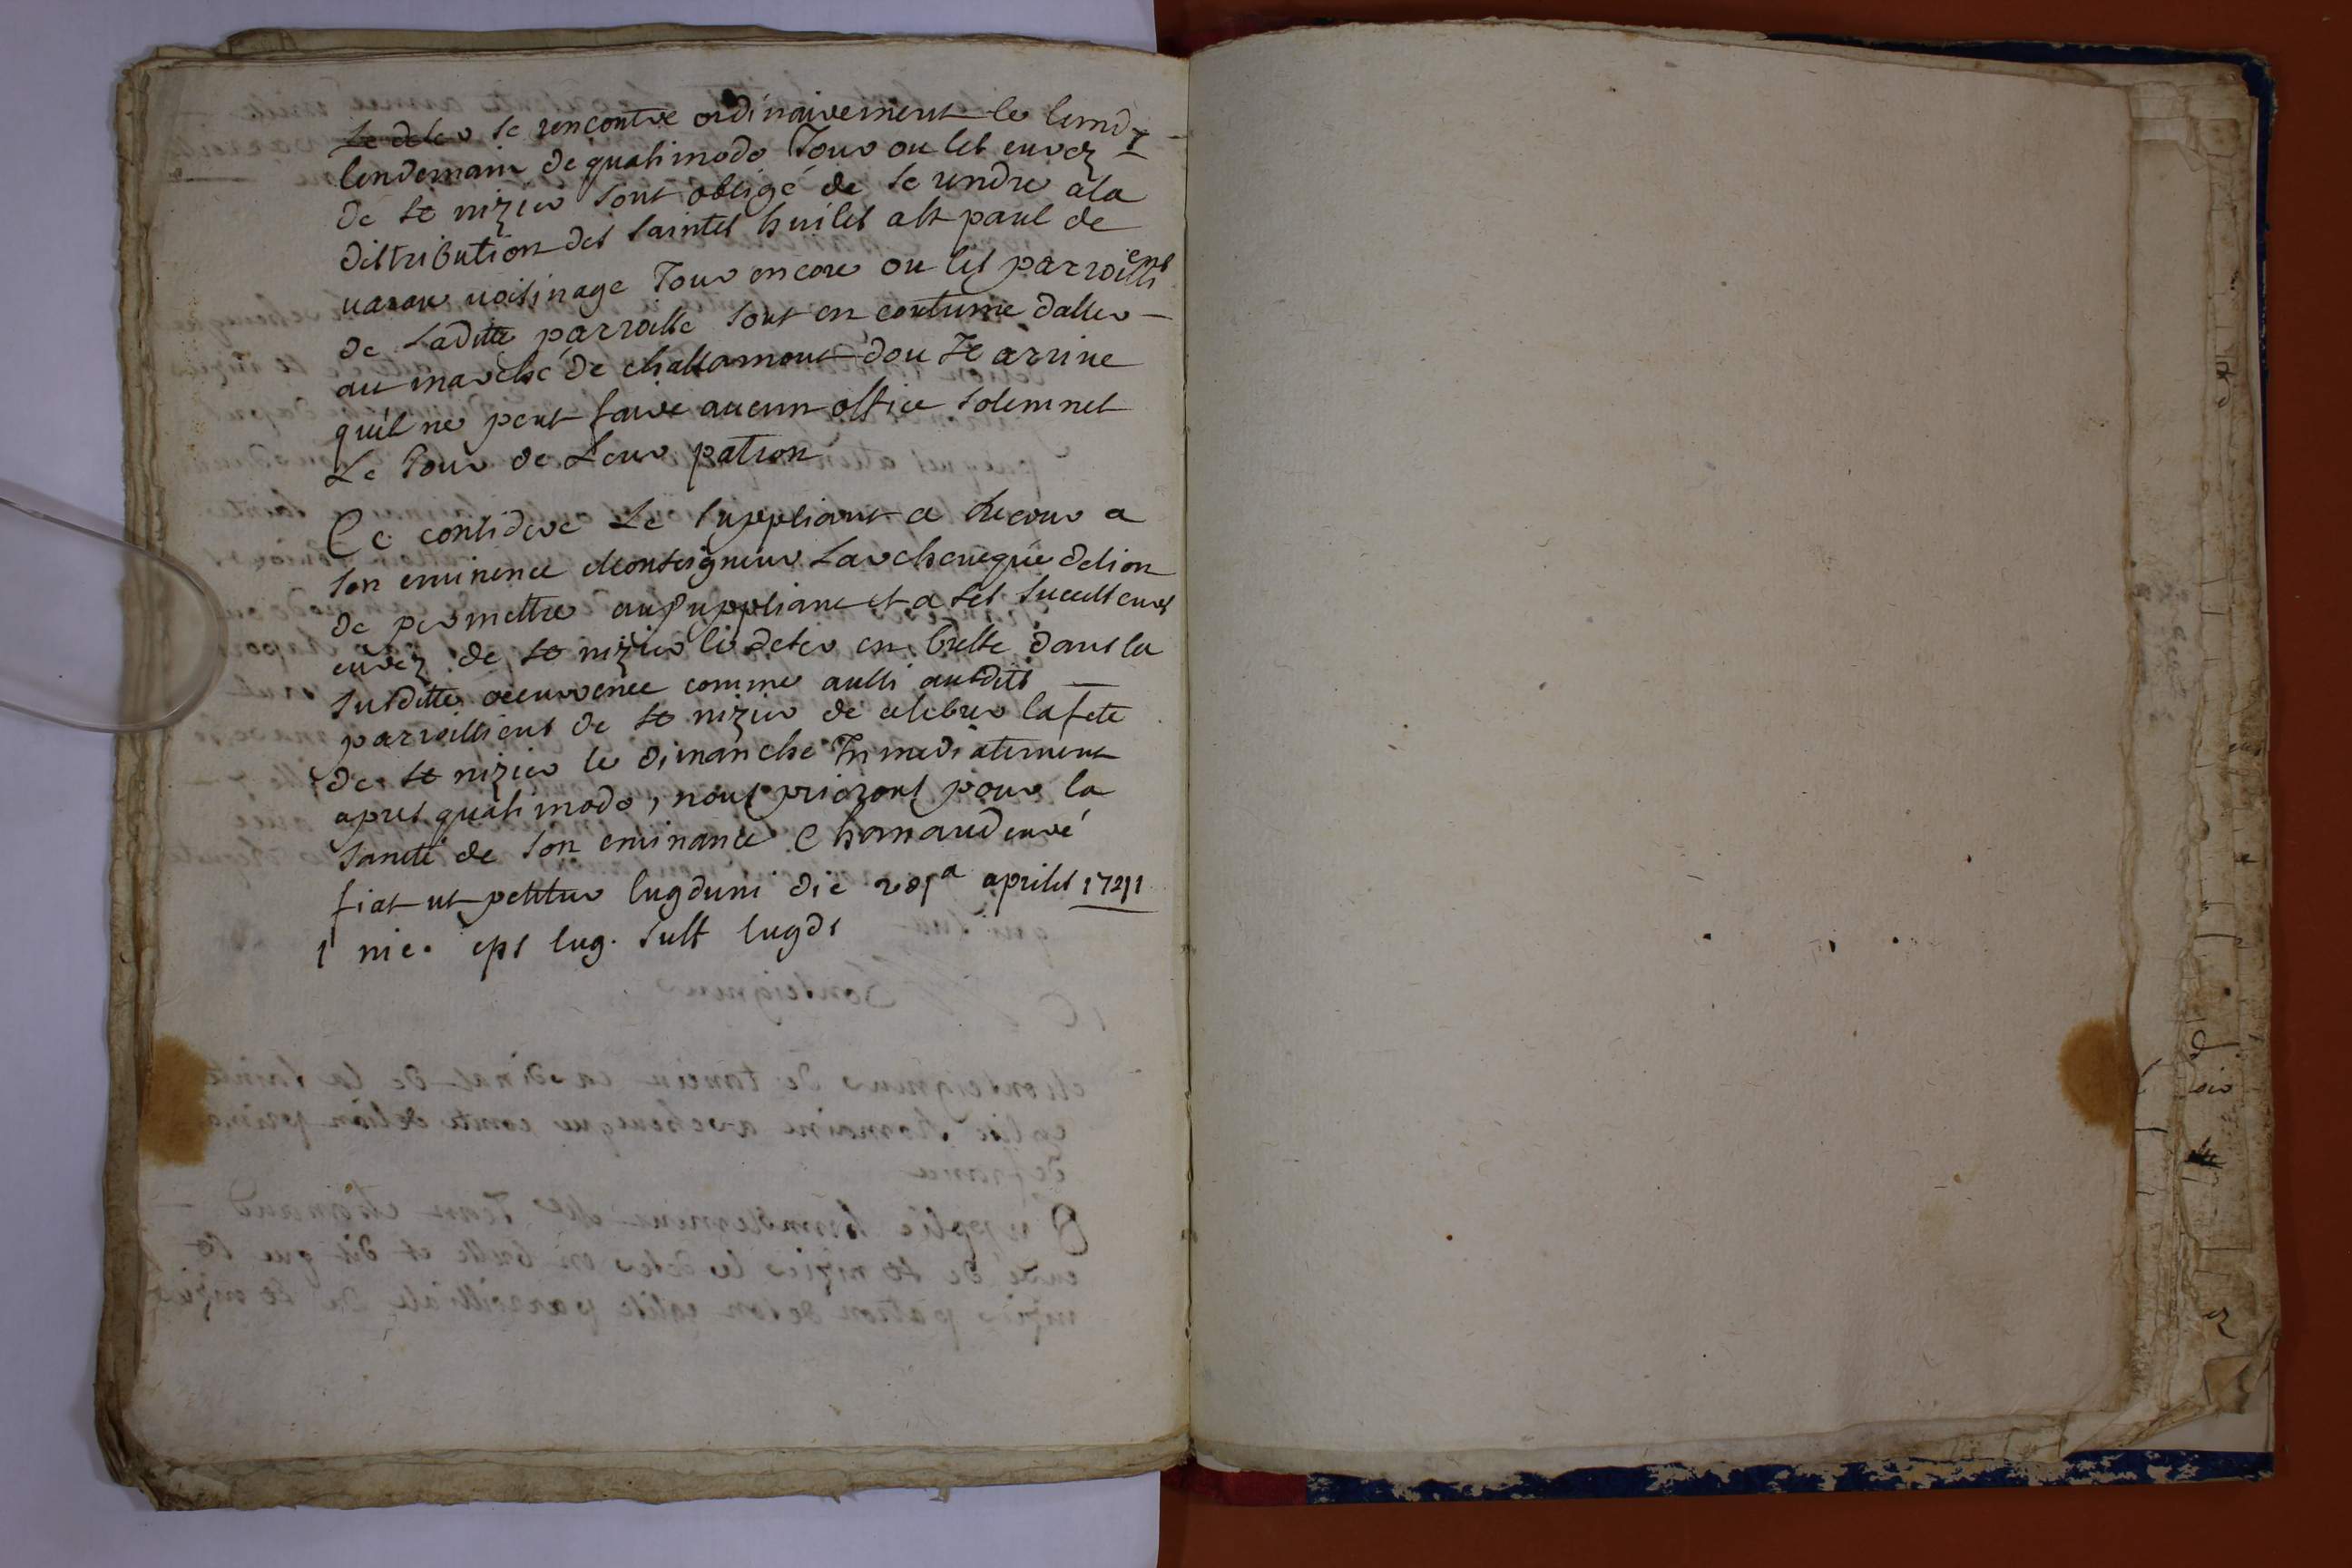 le deser se rencontre ordinairement le lundy
lendemain de quasimodo Jour ou les curez
de st nizier sont obligé de se rendre ala
distribution des saintes huiles a st paul de
varax voisinage Jour encore ou les parroissiens
de Laditte parroisse sont en coutume daller
au marché de chalamont dou Il arrive
quil ne peut faire aucun office solemnel
Le Jour de Leur patron
Ce considere Le suppliant a Recour a
son eminence Monseigneur Larcheveque delion
de permettre au suppliant et a ses successeurs
curez de st nizier le deser en bresse dans la
susditte occurrence comme aussi ausdits
parroissiens de st nizier de celebrer la fete
de st nizier le dimanche Immediatement
apres quasimodo, nous prierons pour la
santé de son eminance Chamaud curé
fiat ut petitur lugduni die aprilis
nic. eps lug. suff lugds